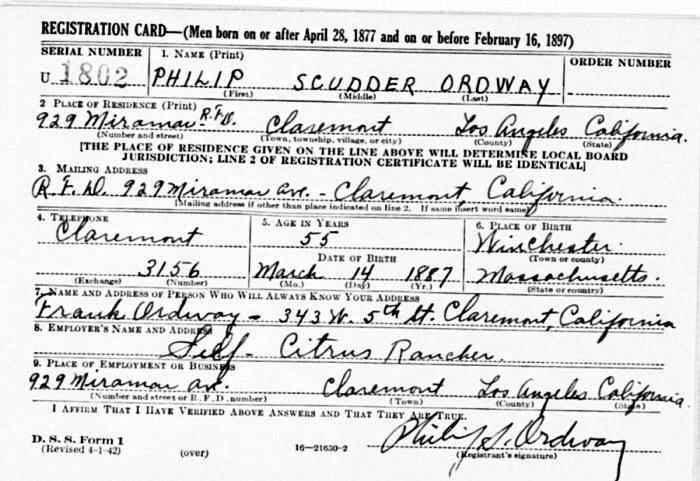 REGISTRATION CARD—(Men born on or after April 28, 1877 and on or before February 16, 1897)
SERIAL NUMBER 1. NAME (Print) ORDER NUMBER
U 1802 PHILIP SCUDDER ORDWAY
(First) (Middle) (Last)
2 PLACE OF RESIDENCE (Print)
929 Miramar R.F.D. Claremont Los Angeles California.
(Number and street) (Town, township, village, or city) (County) (State)
[THE PLACE OF RESIDENCE GIVEN ON THE LINE ABOVE WILL DETERMINE LOCAL BOARD
JURISDICTION; LINE 2 OF REGISTRATION CERTIFICATE WILL BE IDENTICAL]
3. MAILING ADDRESS
R.F.D. 929 Miramar Av. - Claremont, California.
[Mailing address if other than place indicated on line 2. If same insert word same]
4. TELEPHONE 5. AGE IN YEARS 6. PLACE OF BIRTH
Claremont 55 Winchester.
DATE OF BIRTH (Town or county)
3156 March 14 1887 Massachusetts.
(Exchange) (Number) (Mo.) (Day) (Yr.) (State or country)
7. NAME AND ADDRESS OF PERSON WHO WILL ALWAYS KNOW YOUR ADDRESS
Frank Ordway - 343 W. 5th St. Claremont, California
8. EMPLOYER'S NAME AND ADDRESS
Self - Citrus Rancher.
9. PLACE OF EMPLOYMENT OR BUSINESS
929 Miramar Av. Claremont Los Angeles California.
(Number and street or R. F. D. number) (Town) (County) (State)
I AFFIRM THAT I HAVE VERIFIED ABOVE ANSWERS AND THAT THEY ARE TRUE.
D. S. S. Form 1
(Revised 4-1-42) (over) 16—21630-2 Philip S. Ordway
(Registrant's signature)